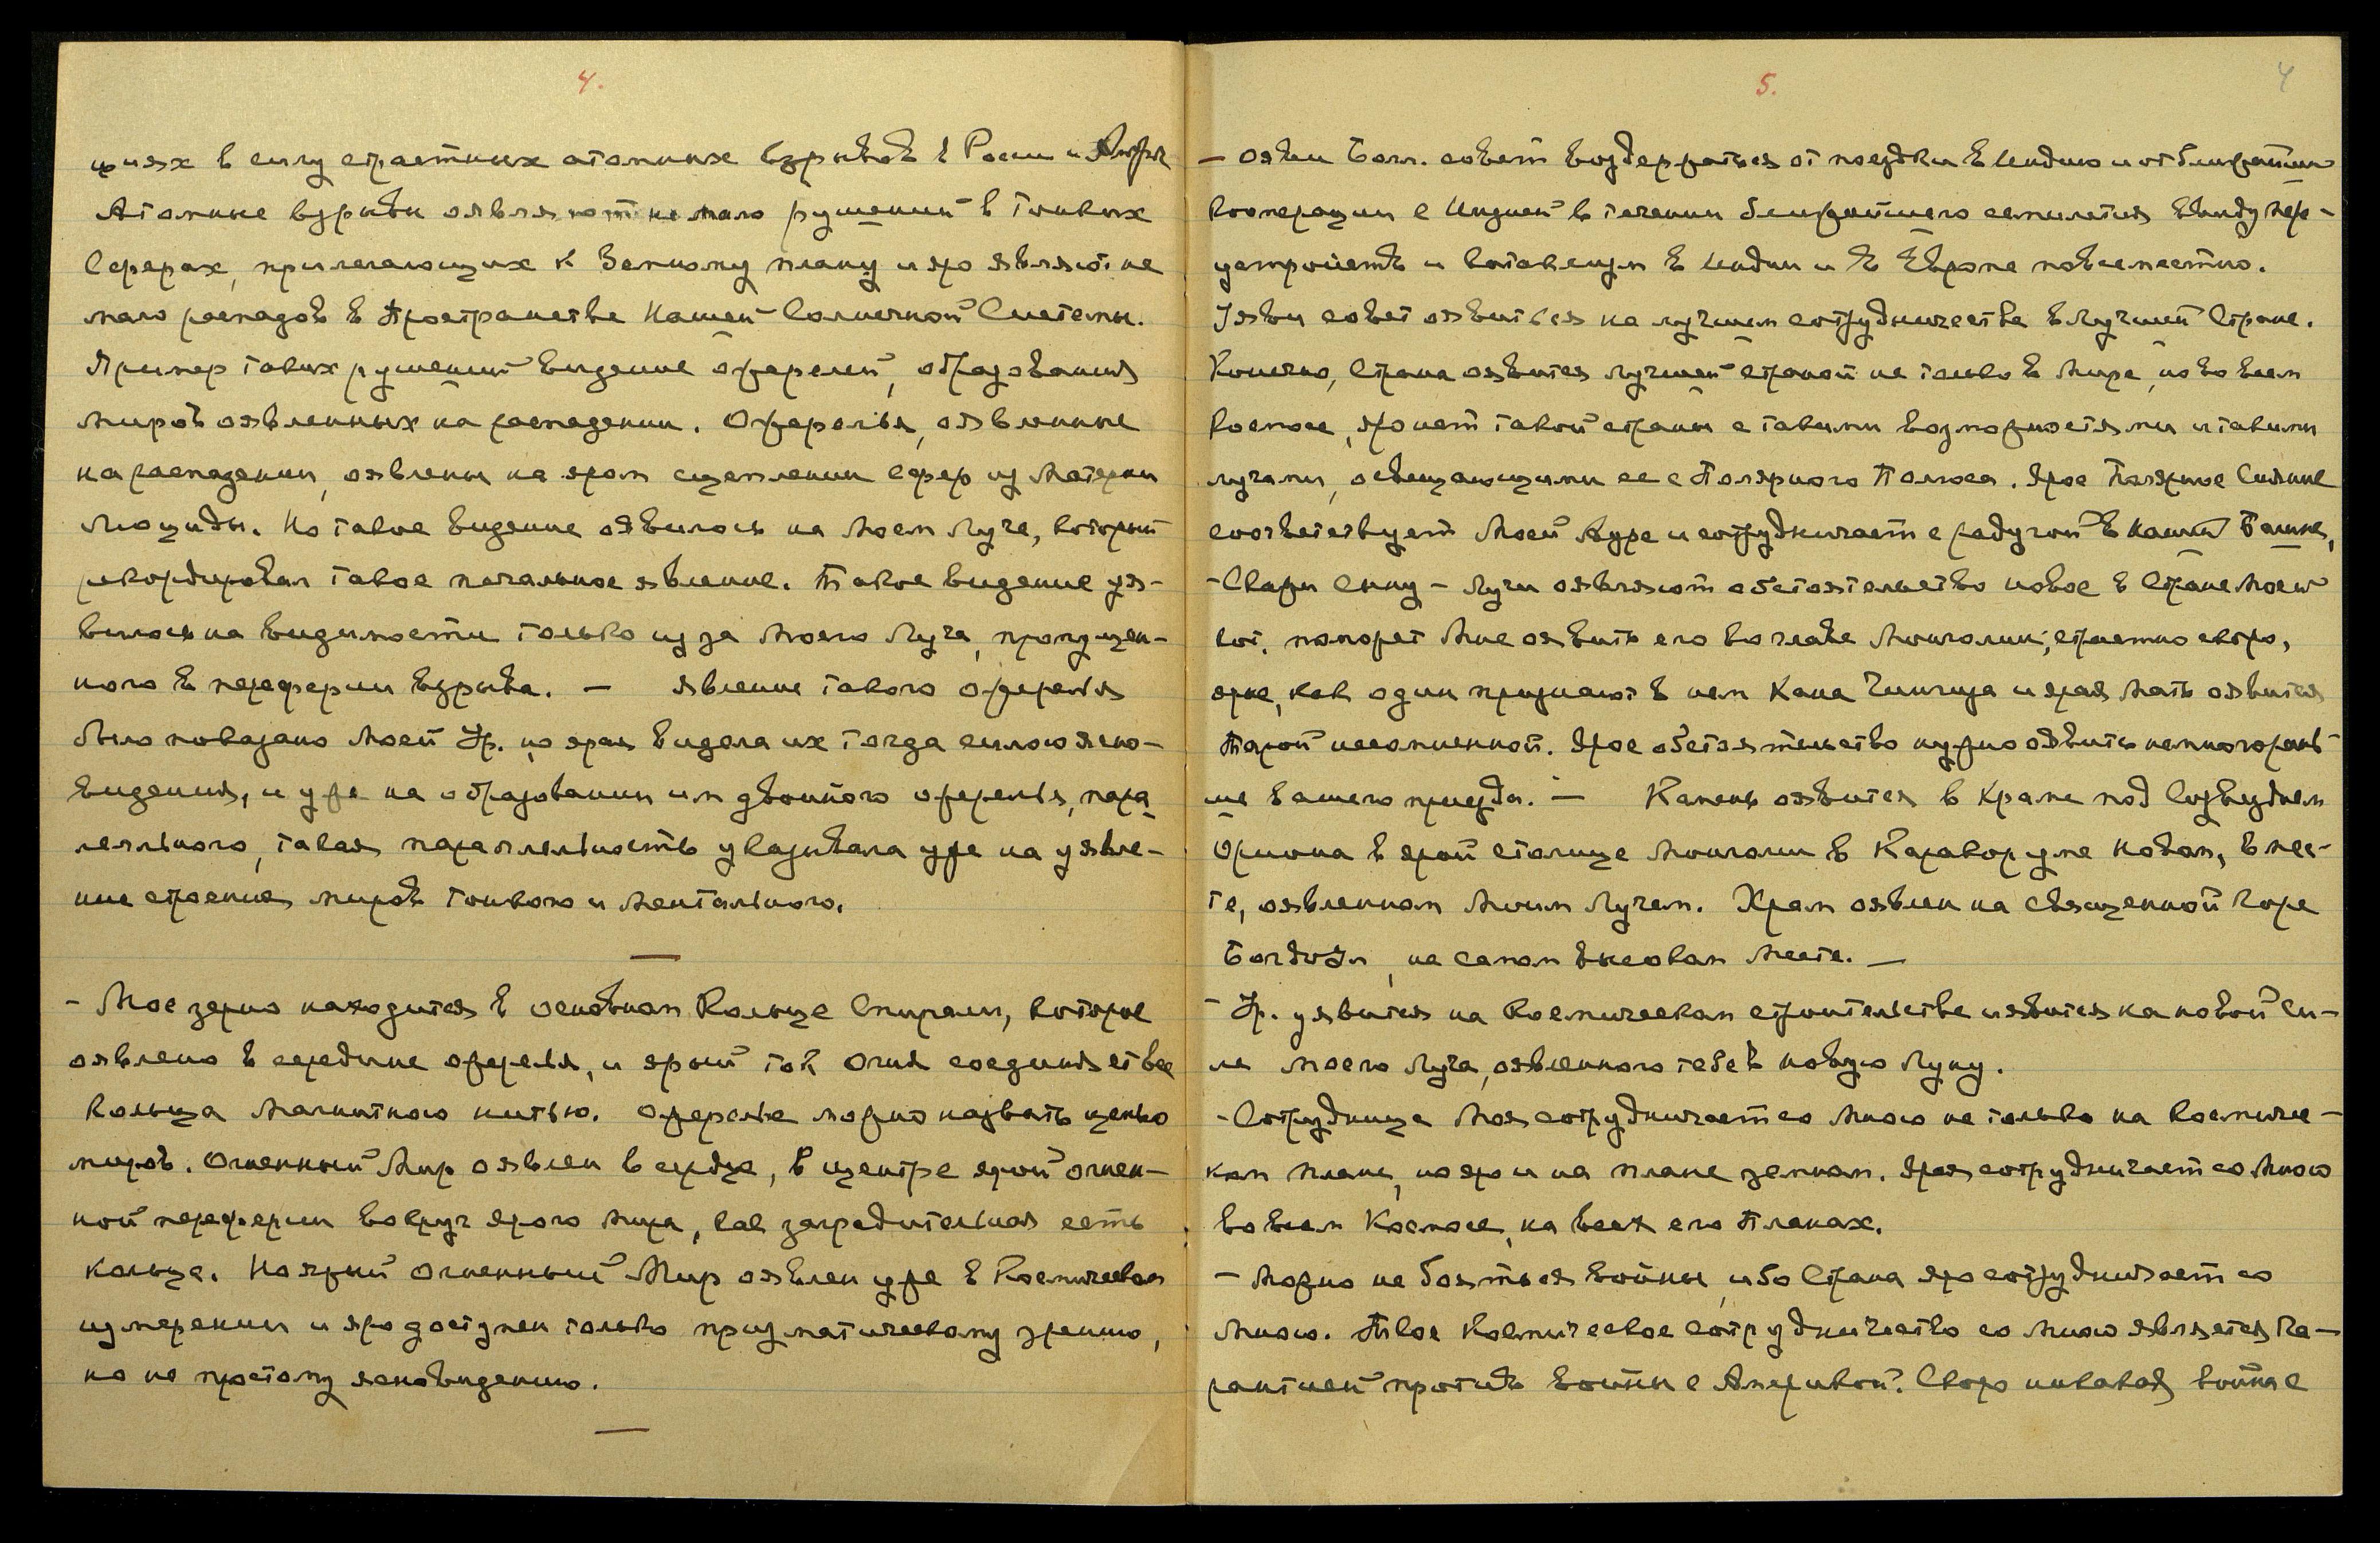 4.
циях в силу страстных атомных взрывов в России и Америк
Атомные взрывы оявляют не мало рушений в Тонких
Сферах, прилегающих к Земному плану и яро являют не
мало распадов в Пространстве Нашей Солнечной Системы.
Пример таких рушений видение ожерелий, образования
миров оявленных на распадении. Ожерелья, оявленные
на распадении, оявлены на яром сцеплении сфер из Материи
Люциды. Но такое видение оявилось на Моем Луче, который
рекордировал такое печальное явление. Такое видение уя-
вилось на видимости только из за Моего Луча, пропущен-
ного в переферии взрыва. — Явление такого ожерелья
было показано Моей Ур. но ярая видела их тогда силою ясно-
видения, и уже на образовании им двойного ожерелья, пара
лельного, такая параллельность указывала уже на уявле-
ние строения миров тонкого и ментального.
- Мое зерно находится в основном Кольце Спирали, которое
оявлено в середине ожерелья, и ярый ток Огня соединяет все
кольца магнитною нитью. Ожерелье можно назвать цепью
миров. Огненный Мир оявлен в сердце, в центре ярой огнен-
ной переферии вокруг ярого мира, как заградительная сеть
кольца. Но ярый Огненный Мир оявлен уже в Космическом
измерении и яро доступен только призматическому зрению,
но не простому ясновидению.
5.
4
- Ояви Бол. совет воздержаться от поездки в Индию и от ближайшей
кооперации с Индией в течении ближайшего семилетия ввиду пере-
устройств и котаклизм в Индии и в Европе повсеместно.
Уяви совет оявиться на лучшем сотрудничестве в лучшей Стране.
Конечно, Страна оявится лучшей страной не только в Мире, но во всем
Космосе, яро нет такой страны с такими возможностями и такими
лучами, освещающими ее с Полярного Полюса. Ярое Полярное Сияние
соответствует Моей Ауре и сотрудничает с радугой в Нашей Башне,
- Скажи Сыну - Лучи оявляют обстоятельство новое в Стране Моей
кот. поможет Мне оявить его во главе Монголии, страстно скоро,
ярые, как один признают в нем Хана Чингиза и ярая Мать оявится
Тарой несомненной. Ярое обстоятельство нужно оявить немного рань-
ше вашего приезда. — Камень оявится в Храме под Созвездием
Ориона в ярой столице Монголии в Каракоруме Новом, в мес-
те, оявленном Моим Лучем. Храм оявлен на священной Горе
Богдо-Ул, на самом высоком месте. —
- Ур. уявится на Космическом строительстве и явится на новой Си-
ле Моего Луча, оявленного тебе в новую Луну.
- Сотрудница Моя сотрудничает со Мною не только на Космичес-
ком плане, но яро и на плане земном. Ярая сотрудничает со Мною
во всем Космосе, на всех его Планах.
- Можно не бояться войны, ибо Страна яро сотрудничает со
Мною. Твое Космическое сотрудничество со Мною является Га-
рантией против войны с Америкой. Скоро никакая война с